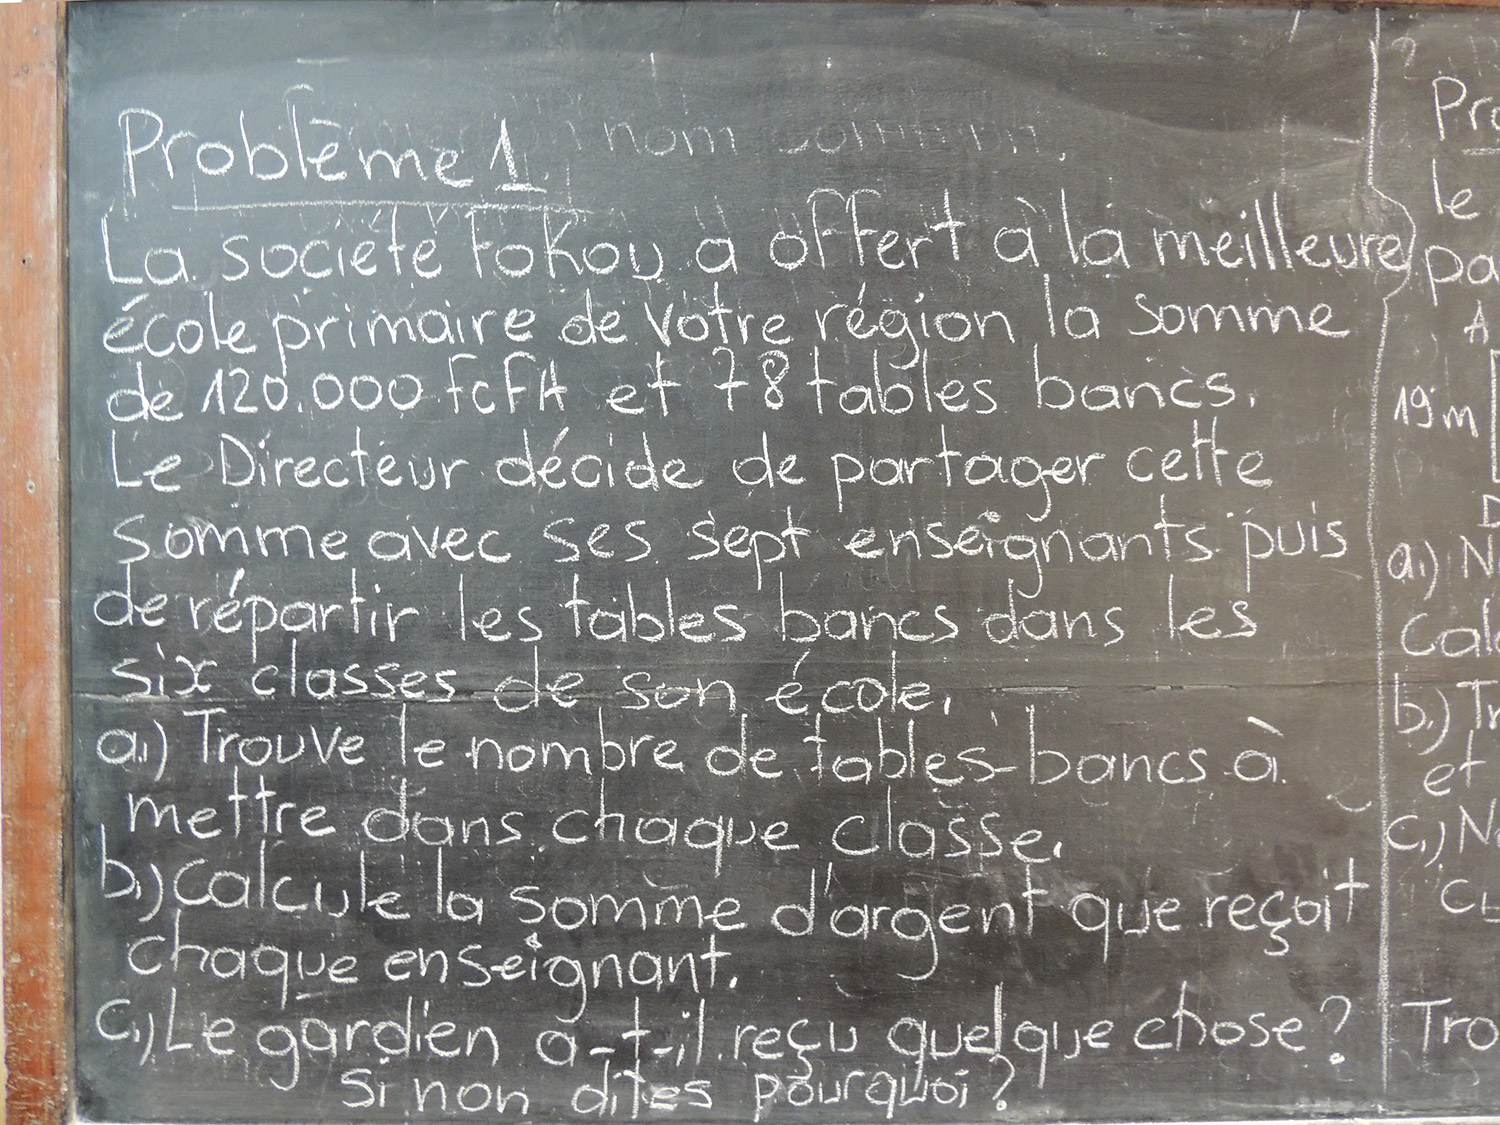 nom commun.
Problème 1
La société FOKOU a offert à la meilleure
école primaire de votre région la somme
de 120.000 FCFA et 78 tables bancs.
Le Directeur décide de partager cette
somme avec ses sept enseignants puis
de répartir les tables bancs dans les
six classes de son école.
a.) Trouve le nombre de tables-bancs à
mettre dans chaque classe.
b.) Calcule la somme d'argent que reçoit
chaque enseignant.
c.) Le gardien a-t-il reçu quelque chose?
Si non dites pourquoi?
Pro
le
pa
A
19m
D
a.) N
Calc
b.) Tr
et
c.) N
Tro